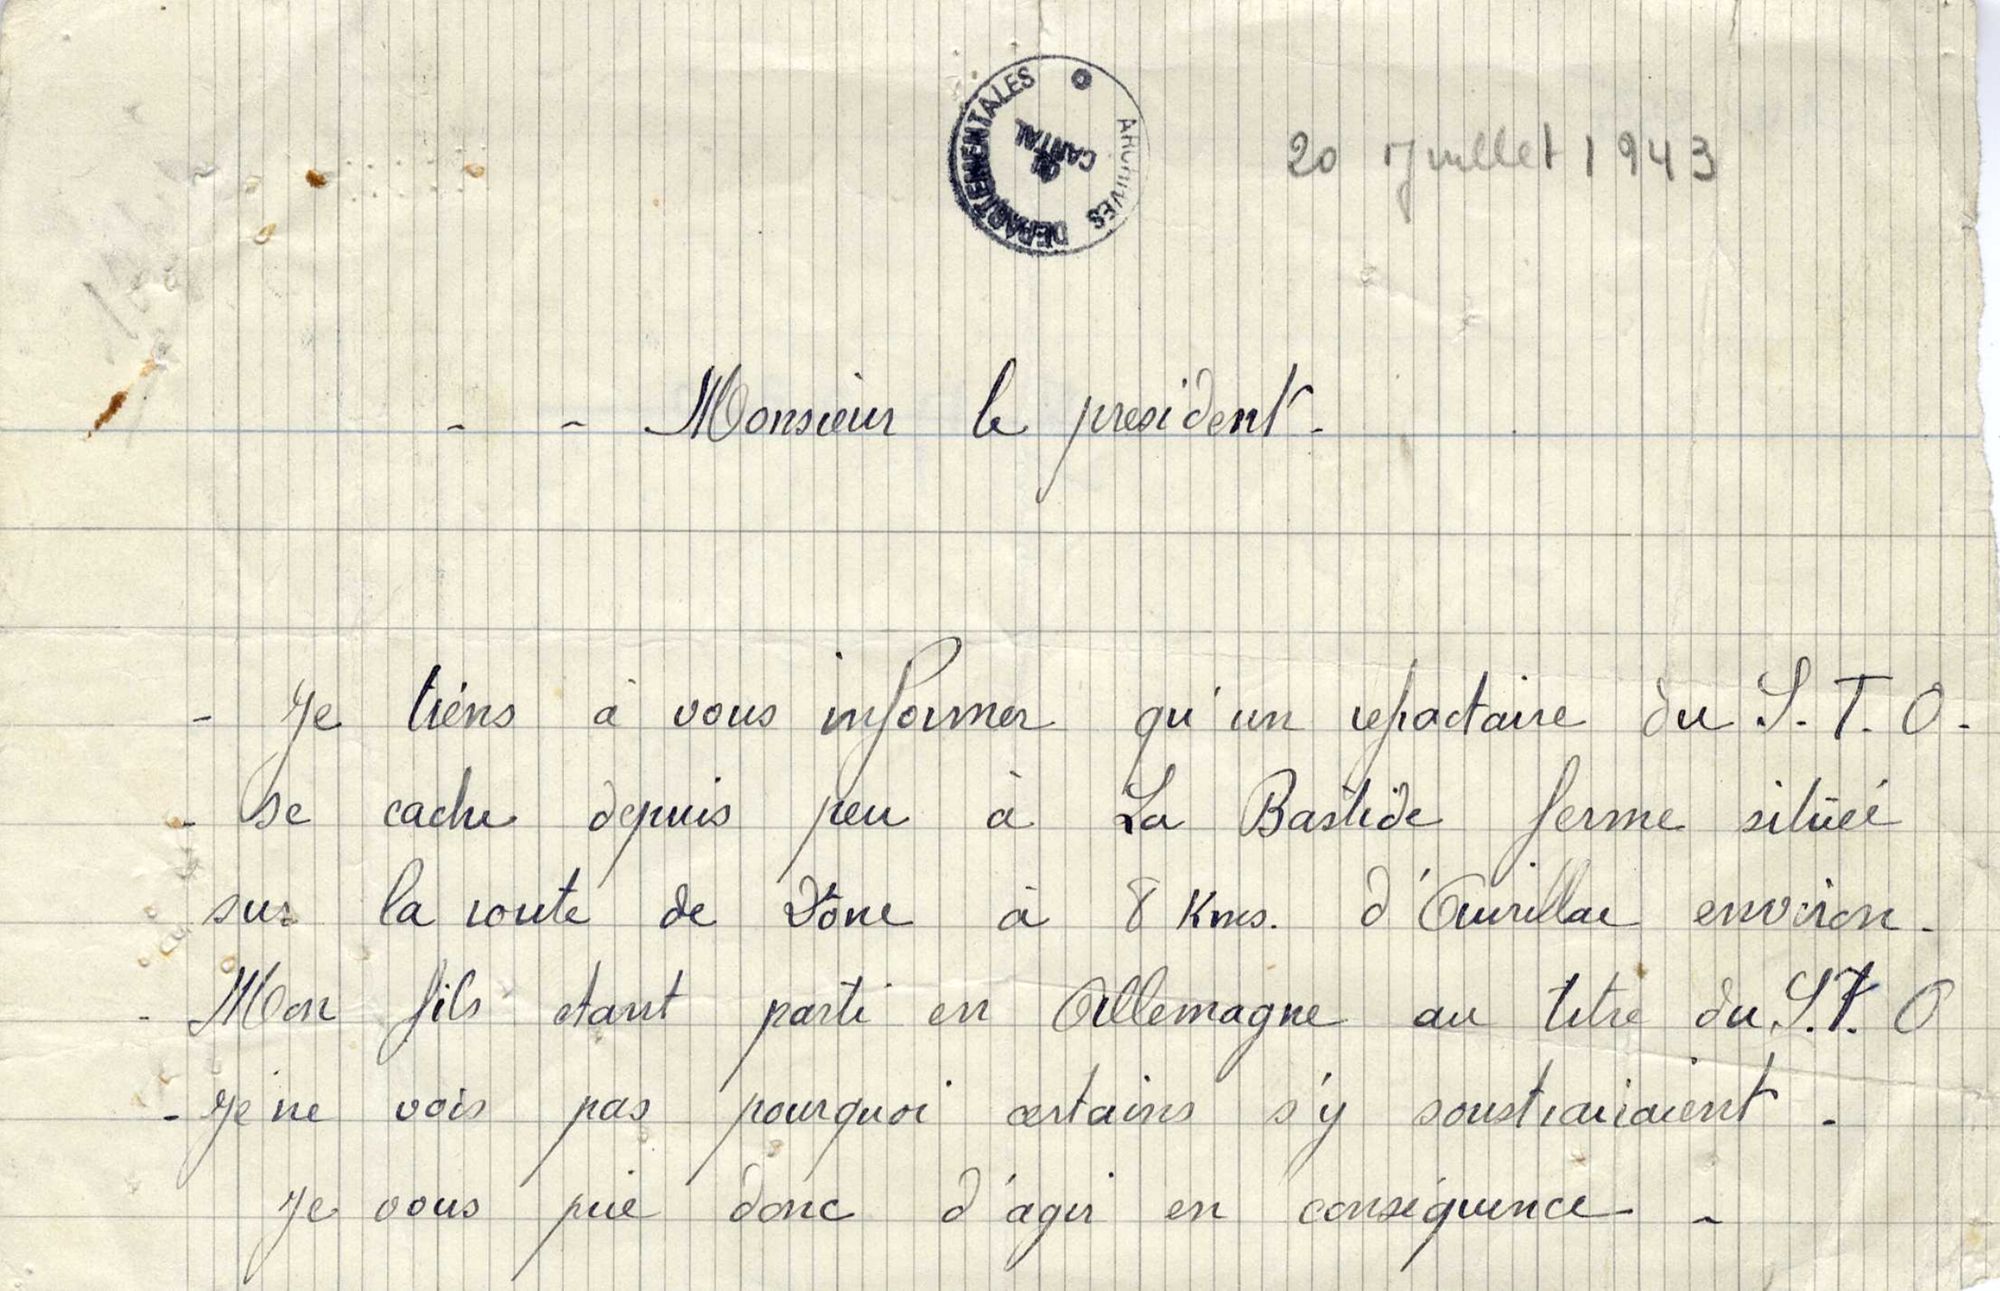 ARCHIVES DÉPARTEMENTALES
DU CANTAL
20 Juillet 1943
- - Monsieur le president -
- Je tiens à vous informer qu'un refractaire du S.T.O. -
- se cache depuis peu à La Bastide ferme située
sur la route de à 8 Kms. d'Aurillac environ -
- Mon fils etant parti en Allemagne au titre du S.T.O
- Je ne vois pas pourquoi certains s'y soustrairaient -
Je vous prie donc d'agir en conséquence -